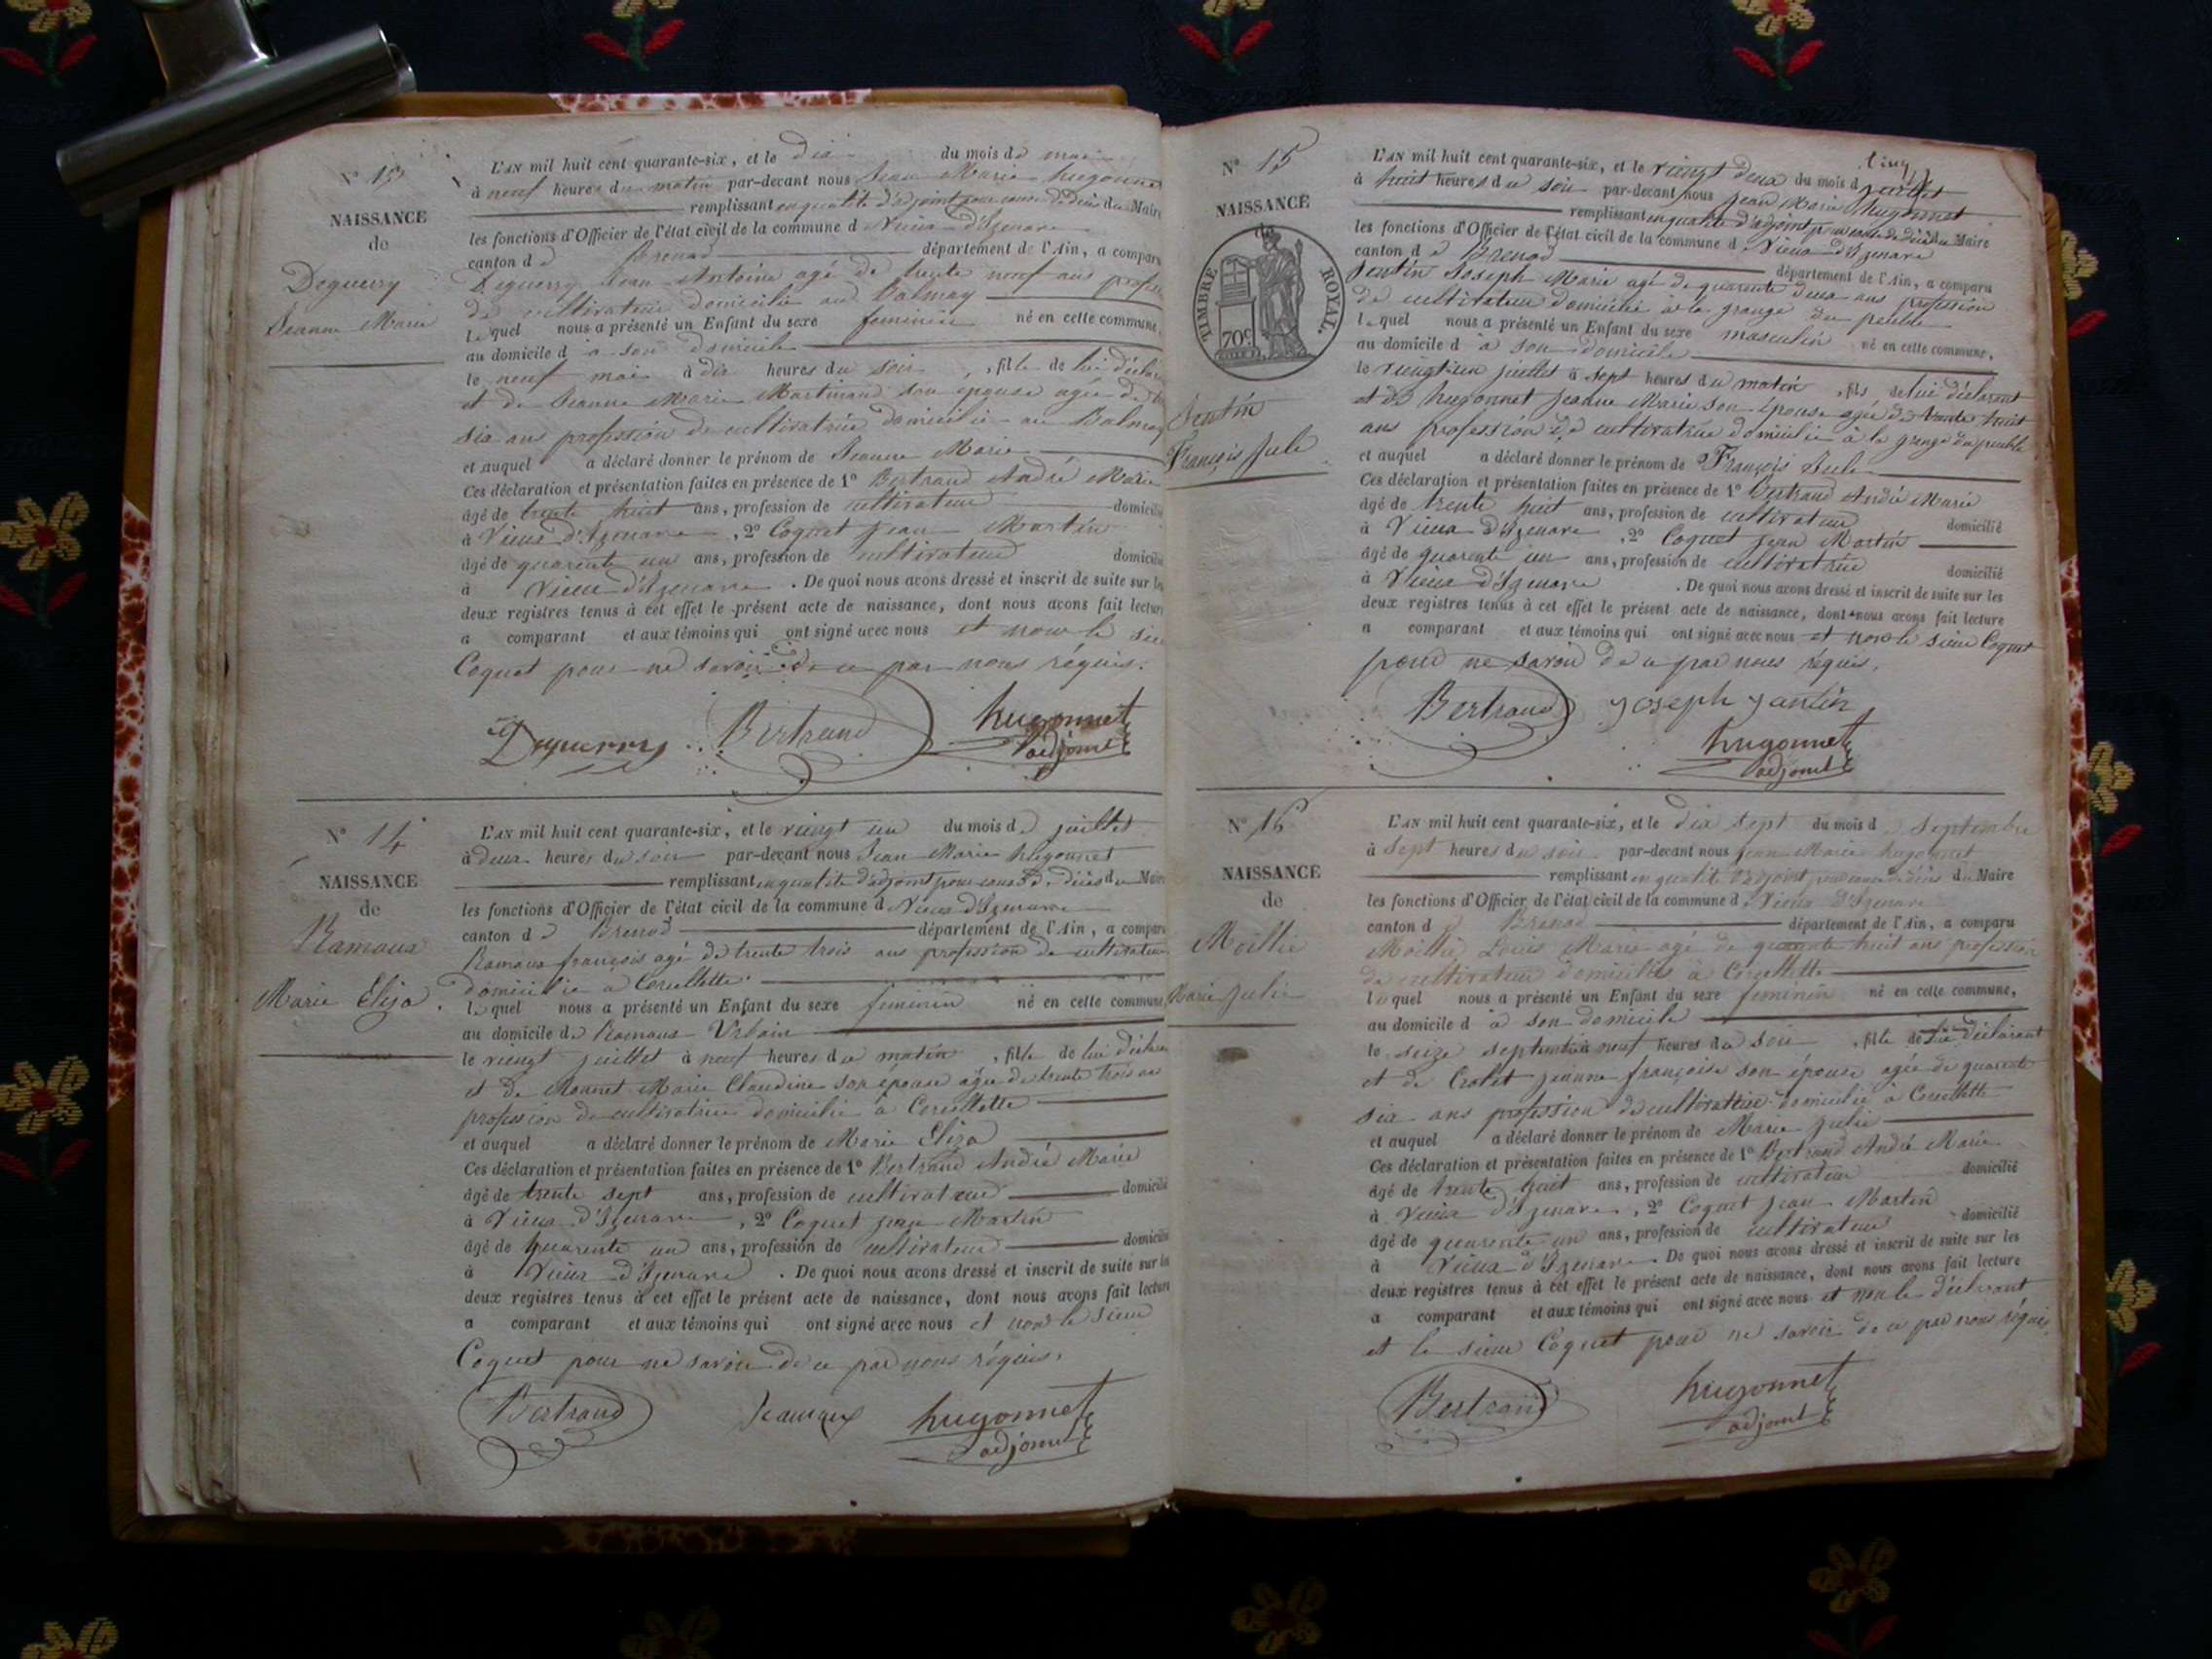 N° 13
NAISSANCE
de
Deguerry
Jeanne Marie
L'AN mil huit cent quarante-six, et le dix du mois de mai
à neuf heures du matin par-devant nous Jean Marie hugonnet
remplissant en qualité d'adjoint pour cause de décès du Maire
les fonctions d'Officier de l'état civil de la commune d Vieux d'Izenave
canton de Brenod département de l'Ain, a comparu
Deguerry Jean Antoine agé de trente neuf ans profess
de cultivateur domicilié au Balmay
lequel nous a présenté un Enfant du sexe feminin né en cette commune,
au domicile d à son domicile
le neuf mai à dix heures du soir, fille de lui déclar
et de Jeanne Marie Martinand son épouse agée de
six ans profession de cultivatrice domicilié au Balmay
et auquel a déclaré donner le prénom de Jeanne Marie
Ces déclaration et présentation faites en présence de 1° Bertrand André Marie
âgé de trente huit ans, profession de cultivateur domicilié
à Vieux d'Izenave, 2° Coquet Jean Martin
âgé de quarente un ans, profession de cultivateur domicilié
à Vieux d'Izenave. De quoi nous avons dressé et inscrit de suite sur les
deux registres tenus à cet effet le présent acte de naissance, dont nous avons fait lecture
a comparant et aux témoins qui ont signé avec nous et non le sieu
Coquet pour ne savoir de ce par nous réquis.
Deguerry Bertrand hugonnet
adjoint
N° 14
NAISSANCE
de
Ramoux
Marie Eliza.
L'AN mil huit cent quarante-six, et le vingt un du mois de juillet
à deux heures du soir par-devant nous Jean Marie hugonnet
remplissant en qualité d'adjoint pour cause de décès du Maire
les fonctions d'Officier de l'état civil de la commune d Vieux d'Izenave
canton de Brenod département de l'Ain, a comparu
Ramoux françois agé de trente trois ans profession de cultivateur
domicilié à Corcellette
lequel nous a présenté un Enfant du sexe feminin né en cette commune,
au domicile de Ramoux Urbain
le vingt juillet à neuf heures du matin, fille de lui déclar
et de Monnet Marie Claudine son épouse agée de trente trois ans
profession de cultivatrice domicilié à Corcellette
et auquel a déclaré donner le prénom de Marie Eliza
Ces déclaration et présentation faites en présence de 1° Bertrand André Marie
âgé de trente sept ans, profession de cultivateur domicilié
à Vieux d'Izenave, 2° Coquet jean Martin
âgé de quarente un ans, profession de cultivateur domicilié
à Vieux d'Izenave. De quoi nous avons dressé et inscrit de suite sur les
deux registres tenus à cet effet le présent acte de naissance, dont nous avons fait lecture
a comparant et aux témoins qui ont signé avec nous et non le sieur
Coquet pour ne savoir de ce par nous réquis.
Bertrand Ramoux hugonnet
adjoint
N° 15
NAISSANCE
de
TIMBRE ROYAL.
70c
Jentin
François Jule
L'AN mil huit cent quarante-six, et le vingt deux du mois d juillet
à huit heures du soir par-devant nous Jean Marie hugonnet
remplissant en qualité d'adjoint pour cause de décès du Maire
les fonctions d'Officier de l'état civil de la commune d Vieux d'Izenave
canton de Brenod département de l'Ain, a comparu
Jentin Joseph Marie agé de quarente deux ans profession
de cultivateur domicilié à la grange du peuble
lequel nous a présenté un Enfant du sexe masculin né en cette commune,
au domicile d à son domicile
le vingt un juillet à sept heures du matin, fils de lui déclarant
et de hugonnet jeanne Marie son épouse agée de trente huit
ans profession de cultivatrice domicilié à la grange du peuble
et auquel a déclaré donner le prénom de François Jule
Ces déclaration et présentation faites en présence de 1° Bertrand André Marie
âgé de trente huit ans, profession de cultivateur domicilié
à Vieux d'Izenave, 2° Coquet Jean Martin
âgé de quarente un ans, profession de cultivateur domicilié
à Vieux d'Izenave. De quoi nous avons dressé et inscrit de suite sur les
deux registres tenus à cet effet le présent acte de naissance, dont nous avons fait lecture
a comparant et aux témoins qui ont signé avec nous et non le sieur Coquet
pour ne savoir de ce par nous réquis.
Bertrand joseph jantin
hugonnet
adjoint
N° 16
NAISSANCE
de
Moillie
Marie Julie
L'AN mil huit cent quarante-six, et le dix sept du mois de Septembre
à sept heures du soir par-devant nous jean Marie hugonnet
remplissant en qualité d'adjoint pour cause de décès du Maire
les fonctions d'Officier de l'état civil de la commune d Vieux d'Izenave
canton d Brenod département de l'Ain, a comparu
Moillie Louis Marie agé de quarente huit ans profession
de cultivateur domicilié à Corcellette
lequel nous a présenté un Enfant du sexe feminin né en cette commune,
au domicile d à son domicile
le seize septembre à neuf heures du soir, fille de lui déclarant
et de Crolet jeanne françoise son épouse agée de quarente
six ans profession de cultivatrice domicilié à Corcellette
et auquel a déclaré donner le prénom de Marie Julie
Ces déclaration et présentation faites en présence de 1° Bertrand André Marie
âgé de trente huit ans, profession de cultivateur domicilié
à Vieux d'Izenave, 2° Coquet jean Martin
âgé de quarente un ans, profession de cultivateur domicilié
à Vieux d'Izenave. De quoi nous avons dressé et inscrit de suite sur les
deux registres tenus à cet effet le présent acte de naissance, dont nous avons fait lecture
a comparant et aux témoins qui ont signé avec nous et non le déclarant
et le sieur Coquet pour ne savoir de ce par nous réquis.
Bertrand hugonnet
adjoint